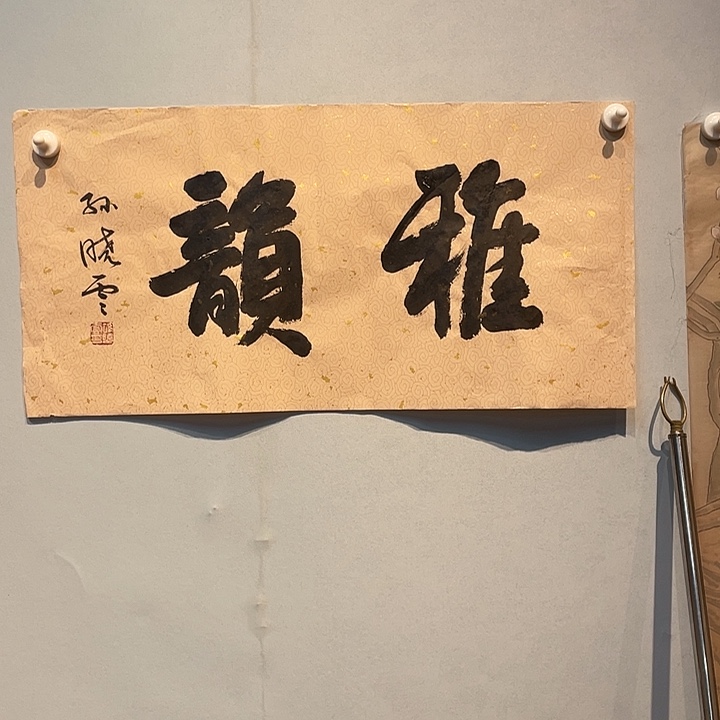 雅韻
孙晓云